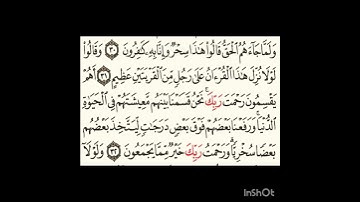 وَلَمَّا جَاءَهُمُ الْحَقُّ قَالُوا هَٰذَا سِحْرٌ وَإِنَّا بِهِ كَٰفِرُونَ ٣٠ وَقَالُوا
لَوْلَا نُزِّلَ هَٰذَا الْقُرْءَانُ عَلَىٰ رَجُلٍ مِّنَ الْقَرْيَتَيْنِ عَظِيمٍ ٣١ أَهُمْ
يَقْسِمُونَ رَحْمَتَ رَبِّكَ ۚ نَحْنُ قَسَمْنَا بَيْنَهُم مَّعِيشَتَهُمْ فِي الْحَيَوٰةِ
الدُّنْيَا ۚ وَرَفَعْنَا بَعْضَهُمْ فَوْقَ بَعْضٍ دَرَجَٰتٍ لِّيَتَّخِذَ بَعْضُهُم
بَعْضًا سُخْرِيًّا ۗ وَرَحْمَتُ رَبِّكَ خَيْرٌ مِّمَّا يَجْمَعُونَ ٣٢ وَلَوْلَا
InShOt